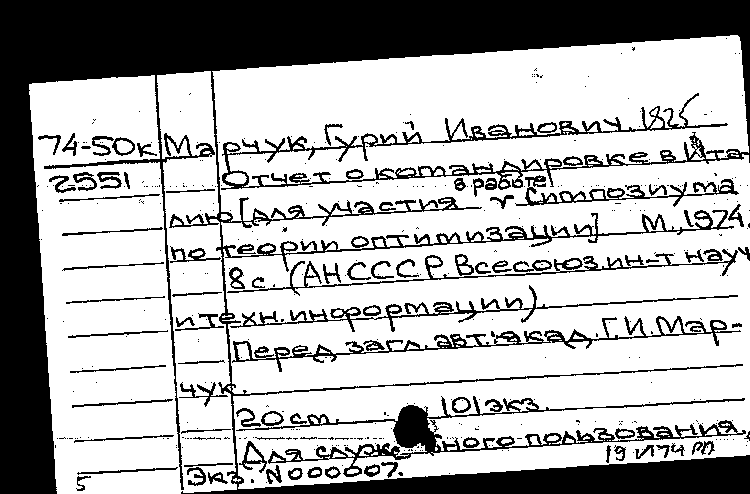 74-50к Марчук, Гурий Иванович, 1925
2551 Отчет о командировке в Ита-
лию [для участия в работе Симпозиума
по теории оптимизации] М., 1974.
8 с. (АН СССР. Всесоюз. ин-т науч
и техн. информации).
Перед загл. авт.: акад. Г.И. Мар-
чук.
20 см. 101 экз.
Для служебного пользования.
Экз. N000007.
5